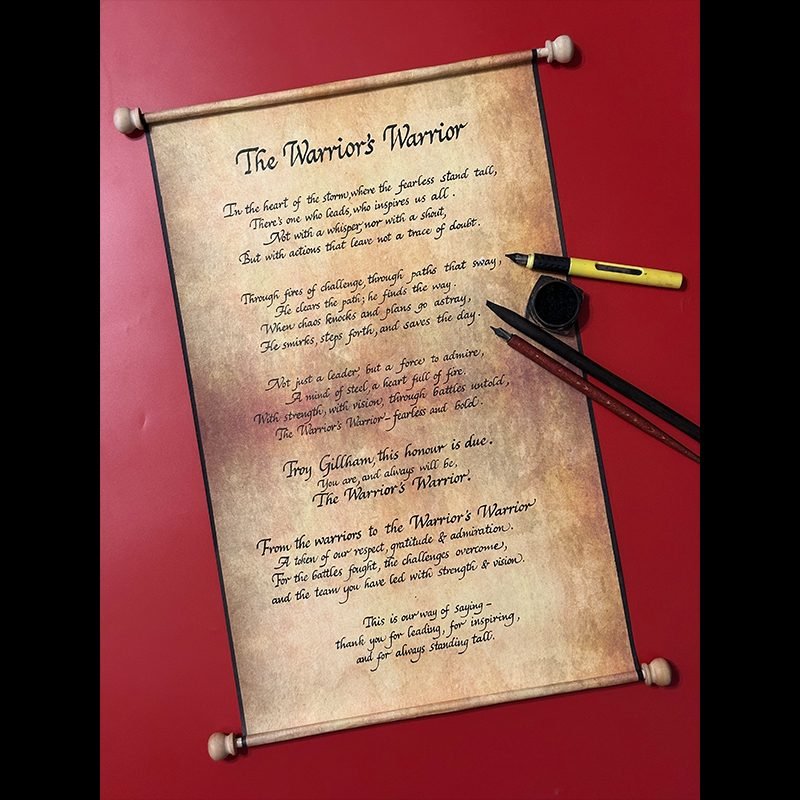 The Warrior's Warrior
In the heart of the storm, where the fearless stand tall,
There's one who leads, who inspires us all.
Not with a whisper, nor with a shout,
But with actions that leave not a trace of doubt.
Through fires of challenge, through paths that sway,
He clears the path; he finds the way.
When chaos knocks and plans go astray,
He smirks, steps forth, and saves the day.
Not just a leader but a force to admire,
A mind of steel, a heart full of fire.
With strength, with vision, through battles untold,
The Warrior's Warrior – fearless and bold.
Troy Gillham, this honour is due.
You are, and always will be,
The Warrior's Warrior.
From the warriors to the Warrior's Warrior
A token of our respect, gratitude & admiration.
For the battles fought, the challenges overcome,
and the team you have led with strength & vision.
This is our way of saying –
thank you for leading, for inspiring,
and for always standing tall.